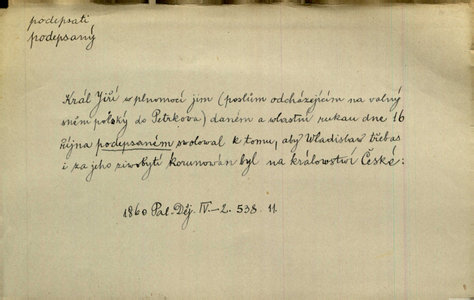 podepsati
podepsaný
Král Jiří w plnomocí jim (poslům odcházejícím na valný
sněm polský do Petrkova) daném a wlastní rukau dne 16
října podepsaném swoloval k tomu, aby Wladislaw třebas
i za jeho živobytí korunowán byl na králowství České:
1860 Pal. Děj. IV.–2. 538. 11.